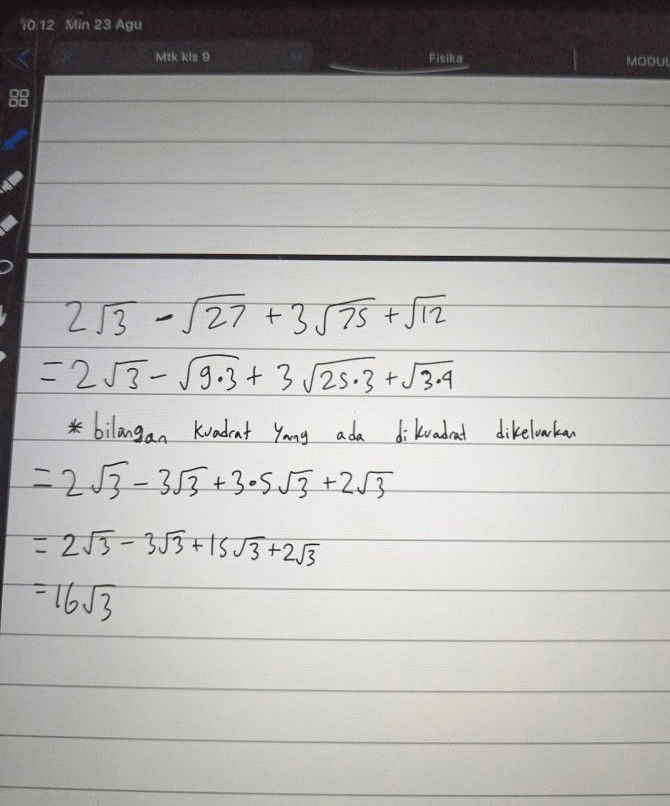 10.12 Min 23 Agu
Mtk kls 9
Fisika
MODUL
2√3 - √27 + 3√75 + √12
= 2√3 - √9•3 + 3√25•3 + √3•4
* bilangan kuadrat yang ada di kuadrat dikeluarkan
= 2√3 - 3√3 + 3•5√3 + 2√3
= 2√3 - 3√3 + 15√3 + 2√3
= 16√3